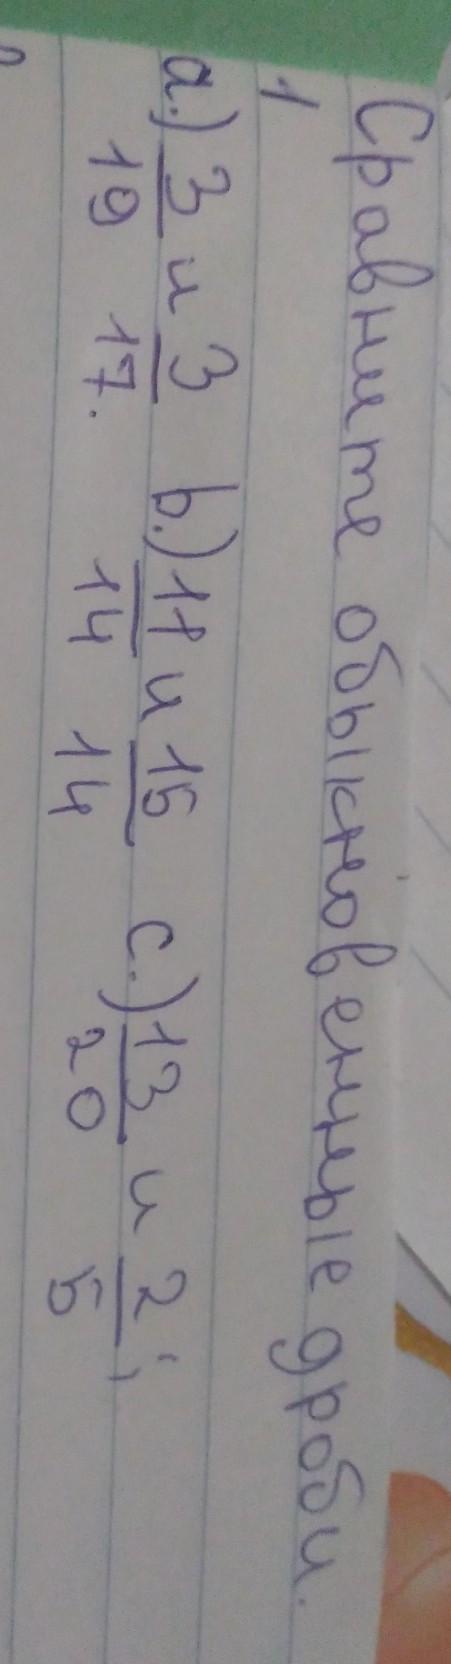 Сравните обыкновенные дроби.
1
a.) 3/19 и 3/17. b.) 11/14 и 15/14 c.) 13/20 и 2/5;